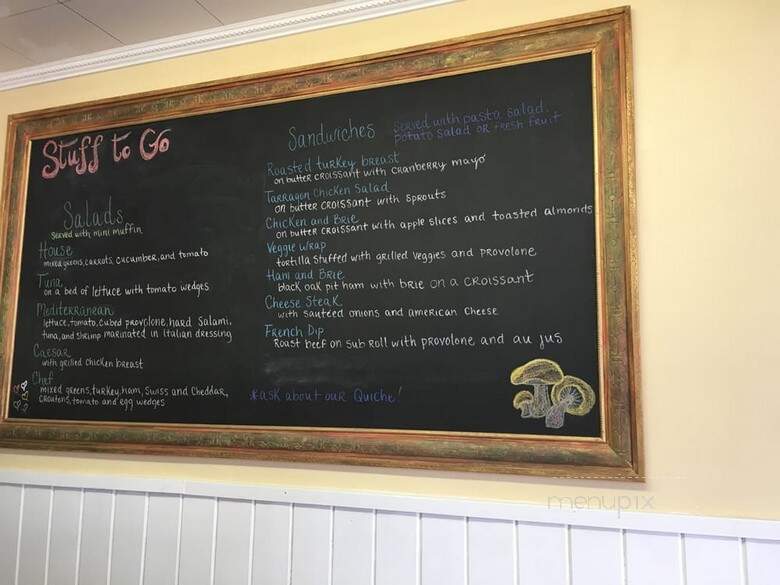 Stuff to Go
Salads
Served with mini muffin
House
mixed greens, carrots, cucumber, and tomato
Tuna
on a bed of lettuce with tomato wedges
Mediterranean
lettuce, tomato, cubed provolone, hard salami,
tuna, and shrimp marinated in Italian dressing
Caesar
with grilled chicken breast
Chef
mixed greens, turkey, ham, Swiss and Cheddar,
croutons, tomato and egg wedges
Sandwiches
Served with pasta salad,
potato salad or fresh fruit
Roasted turkey breast
on butter croissant with cranberry mayo
Tarragon Chicken Salad
on butter croissant with sprouts
Chicken and Brie
on butter croissant with apple slices and toasted almonds
Veggie Wrap
tortilla stuffed with grilled veggies and provolone
Ham and Brie
black oak pit ham with brie on a croissant
Cheese Steak
with sautéed onions and american cheese
French Dip
Roast beef on sub roll with provolone and au jus
*ask about our Quiche!
menupix